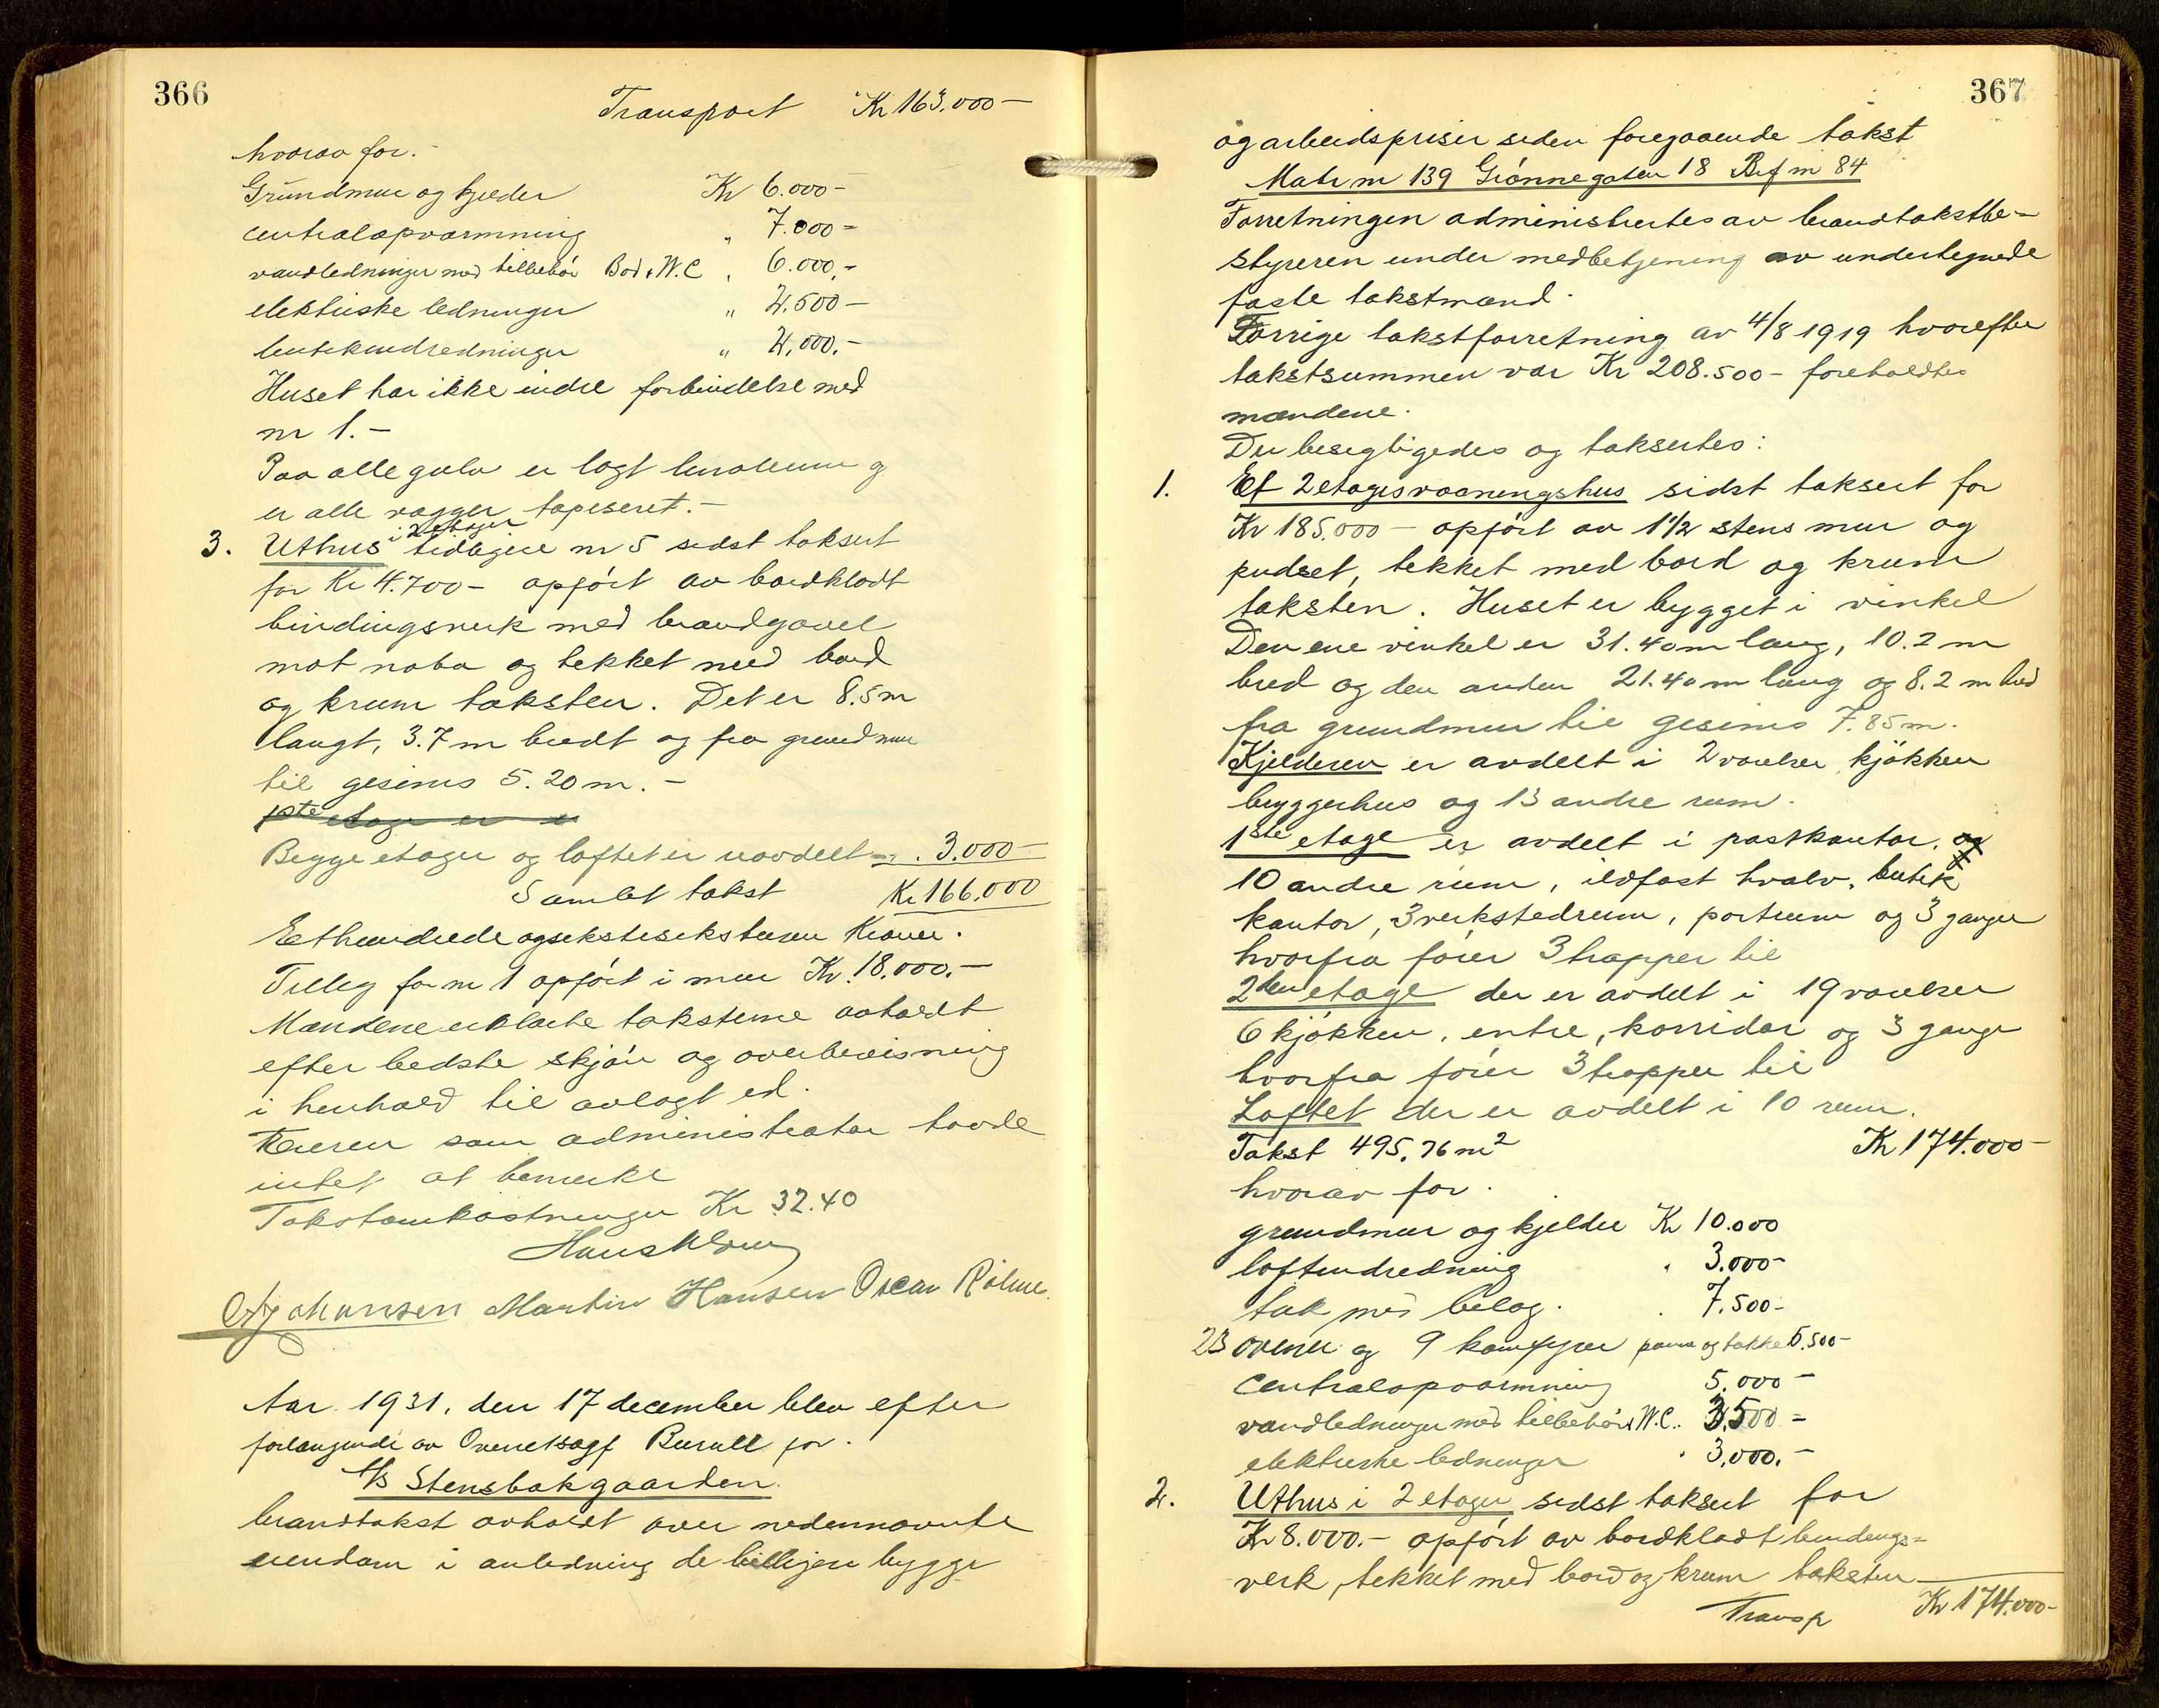 366
Transport Kr 163.000 –
hvorav for. –
Grundmur og kjelder Kr 6.000 –
centralopvarmning " 7.000 –
vandledninger med tilbehör Bad & W.C. " 6.000, –
elektriske ledninger " 2,500 –
butikindredninger " 2,000. –
Huset har ikke indre forbindelse med
nr 1. –
Paa alle gulv er lagt linoleum og
er alle vægger tapeseret. –
3. Uthus i 2 etager tidligere nr 5 sidst taksert
for Kr 4.700 – opført av bordklædt
bindingsverk med brandgavel
mot nabo og tekket med bord
og krum taksten. Det er 8.5 m
langt, 3.7 m bredt og fra grundmur
til gesims 5.20 m. –
1ste etage er
Begge etager og loftet er uavdelt " 3.000 –
Samlet takst Kr 166.000
Ethundrede og sekstisekstusen Kroner.
Tillæg for nr 1 opført i mur Kr. 18.000. –
Mændene erklærte taksterne avholdt
efter bedste skjøn og overbevisning
i henhold til avlagt ed.
Eieren som administrator havde
intet at bemerke
Takstomkostninger Kr 32.40
Martin Hansen Oscar Rölme.
Aar 1931, den 17 december blev efter
forlangende av Overretssagf Burull for.
A/S Stensbakgaarden.
brandtakst avholdt over nedennævnte
eiendom i anledning de billigere bygge
367
og arbeidspriser siden foregaaende takst
Matr nr 139 Grönnegaten 18 Brf nr 84
Forretningen administrertes av brandtakstbe-
styreren under medbetjening av undertegnede
faste takstmænd.
Forrige takstforretning av 4/8 1919 hvorefter
takstsummen var Kr 208.500 – foreholdtes
mændene.
Der besegtigedes og taksertes:
1. Et 2 etages vaaningshus sidst taksert for
Kr 185.000 – opført av 1½ stens mur og
pudset, tekket med bord og krum
taksten. Huset er bygget i vinkel
Den ene vinkel er 31.40 m lang, 10.2 m
bred og den anden 21.40 m lang og 8.2 m bred
fra grundmur til gesims 7.85 m.
Kjelderen er avdelt i 2 værelser, kjökken
bryggerhus og 13 andre rum.
1ste etage er avdelt i postkontor, og
10 andre rum, ildfast hvælv, butik
kontor, 3 verkstedrum, portrum og 3 ganger
hvorfra förer 3 trapper til
2den etage der er avdelt i 19 værelser
6 kjökken, entre, korridor og 3 ganger
hvorfra förer 3 trapper til
Loftet der er avdelt i 10 rum.
Takst 495,76 m² Kr 174.000 –
hvorav for.
grundmur og kjelder Kr 10.000
loftindredning " 3.000 –
tak med belæg. " 7.500 –
23 ovner og 9 komfyrer panne og takke 5.500 –
Centralopvarmning 5,000 –
vandledninger med tilbehör & W.C. 3,500 –
elektriske ledninger " 3,000. –
2. Uthus i 2 etager sidst taksert for
Kr 8.000. – opført av bordklædt bindings-
verk, tekket med bord og krum taksten
Transp Kr 174.000 –